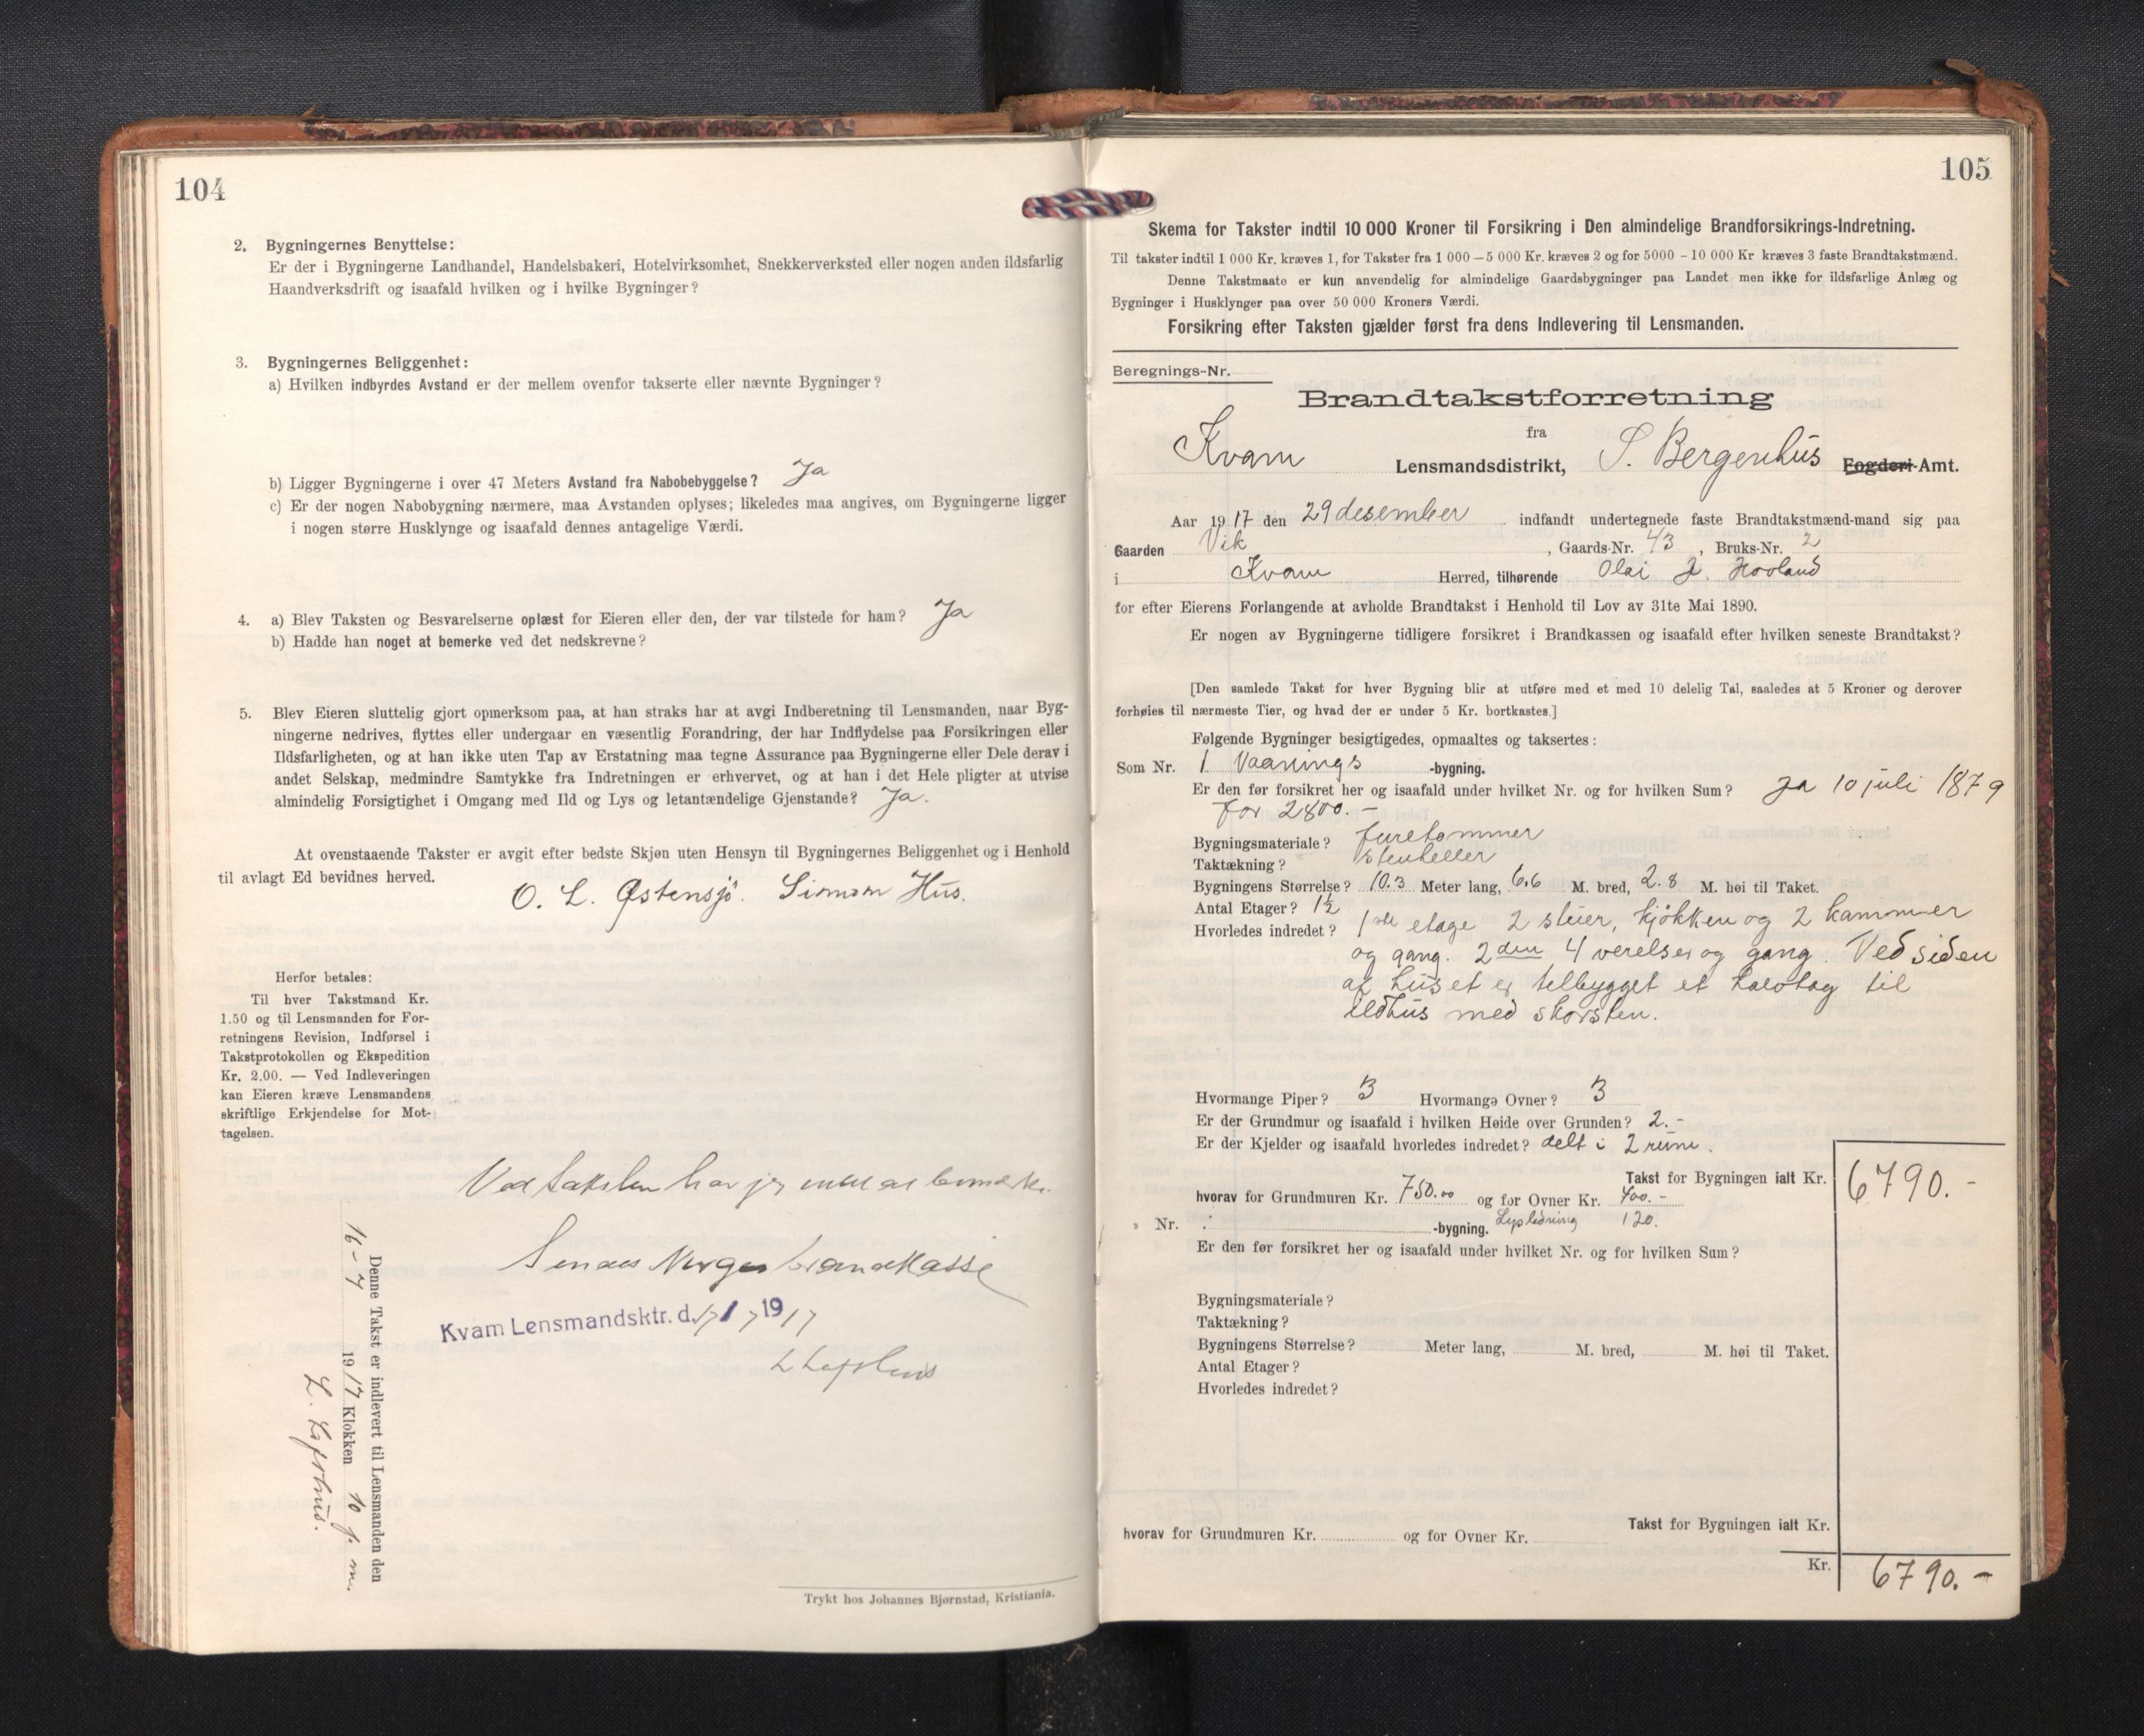 104
2. Bygningernes Benyttelse:
Er der i Bygningerne Landhandel, Handelsbakeri, Hotelvirksomhet, Snekkerverksted eller nogen anden ildsfarlig
Haandverksdrift og isaafald hvilken og i hvilke Bygninger?
3. Bygningernes Beliggenhet:
a) Hvilken indbyrdes Avstand er der mellem ovenfor takserte eller nævnte Bygninger?
b) Ligger Bygningerne i over 47 Meters Avstand fra Nabobebyggelse? Ja
c) Er der nogen Nabobygning nærmere, maa Avstanden oplyses; likeledes maa angives, om Bygningerne ligger
i nogen større Husklynge og isaafald dennes antagelige Værdi.
4. a) Blev Taksten og Besvarelserne oplæst for Eieren eller den, der var tilstede for ham? Ja
b) Hadde han noget at bemerke ved det nedskrevne?
5. Blev Eieren sluttelig gjort opmerksom paa, at han straks har at avgi Indberetning til Lensmanden, naar Byg-
ningerne nedrives, flyttes eller undergaar en væsentlig Forandring, der har Indflydelse paa Forsikringen eller
Ildsfarligheten, og at han ikke uten Tap av Erstatning maa tegne Assurance paa Bygningerne eller Dele derav i
andet Selskap, medmindre Samtykke fra Indretningen er erhvervet, og at han i det Hele pligter at utvise
almindelig Forsigtighet i Omgang med Ild og Lys og letantændelige Gjenstande? Ja.
At ovenstaaende Takster er avgit efter bedste Skjøn uten Hensyn til Bygningernes Beliggenhet og i Henhold
til avlagt Ed bevidnes herved.
O. L. Østensjö. Simon Hus.
Herfor betales:
Til hver Takstmand Kr.
1.50 og til Lensmanden for For-
retningens Revision, Indførsel i
Takstprotokollen og Ekspedition
Kr. 2.00. — Ved Indleveringen
kan Eieren kræve Lensmandens
skriftlige Erkjendelse for Mot-
tagelsen.
Ved taksten har jeg intet at bemerke.
Sendes Norges brandkasse
Kvam Lensmandsktr. d. 17/7 1917
Denne Takst er indlevert til Lensmanden den
16-7 1917 Klokken 10 f. m.
Trykt hos Johannes Bjørnstad, Kristiania.
105
Skema for Takster indtil 10 000 Kroner til Forsikring i Den almindelige Brandforsikrings-Indretning.
Til takster indtil 1 000 Kr. kræves 1, for Takster fra 1 000 – 5 000 Kr. kræves 2 og for 5000 – 10 000 Kr kræves 3 faste Brandtakstmænd.
Denne Takstmaate er kun anvendelig for almindelige Gaardsbygninger paa Landet men ikke for ildsfarlige Anlæg og
Bygninger i Husklynger paa over 50 000 Kroners Værdi.
Forsikring efter Taksten gjælder først fra dens Indlevering til Lensmanden.
Beregnings-Nr.
Brandtakstforretning
fra
Kvam Lensmandsdistrikt, S. Bergenhus Fogderi-Amt.
Aar 1917 den 29 desember indfandt undertegnede faste Brandtakstmænd-mand sig paa
Gaarden Vik, Gaards-Nr. 43, Bruks-Nr. 2
i Kvam Herred, tilhørende Olai J. Hovland
for efter Eierens Forlangende at avholde Brandtakst i Henhold til Lov av 31te Mai 1890.
Er nogen av Bygningerne tidligere forsikret i Brandkassen og isaafald efter hvilken seneste Brandtakst?
[Den samlede Takst for hver Bygning blir at utføre med et med 10 delelig Tal, saaledes at 5 Kroner og derover
forhøies til nærmeste Tier, og hvad der er under 5 Kr. bortkastes.]
Følgende Bygninger besigtigedes, opmaaltes og taksertes:
Som Nr. 1 Vaanings -bygning.
Er den før forsikret her og isaafald under hvilket Nr. og for hvilken Sum? Ja 10 juli 1879
for 2800.-
Bygningsmateriale? furetømmer
Taktækning? stenheller
Bygningens Størrelse? 10.3 Meter lang, 6.6 M. bred, 2.8 M. høi til Taket.
Antal Etager? 1½
Hvorledes indredet? 1ste etage 2 stuer, kjökken og 2 kammer
og gang. 2den 4 verelser og gang. Ved siden
af huset er tilbygget et halvtag til
ildhus med skorsten.
Hvormange Piper? 3 Hvormange Ovner? 3
Er der Grundmur og isaafald i hvilken Høide over Grunden? 2.-
Er der Kjelder og isaafald hvorledes indredet? delt i 2 rum.
Takst for Bygningen ialt Kr. 6790.-
hvorav for Grundmuren Kr. 750.00 og for Ovner Kr. 400.-
» Nr. -bygning. Lysledning 120.
Er den før forsikret her og isaafald under hvilket Nr. og for hvilken Sum?
Bygningsmateriale?
Taktækning?
Bygningens Størrelse? Meter lang, M. bred, M. høi til Taket.
Antal Etager?
Hvorledes indredet?
Takst for Bygningen ialt Kr.
hvorav for Grundmuren Kr. og for Ovner Kr.
Kr. 6790.-